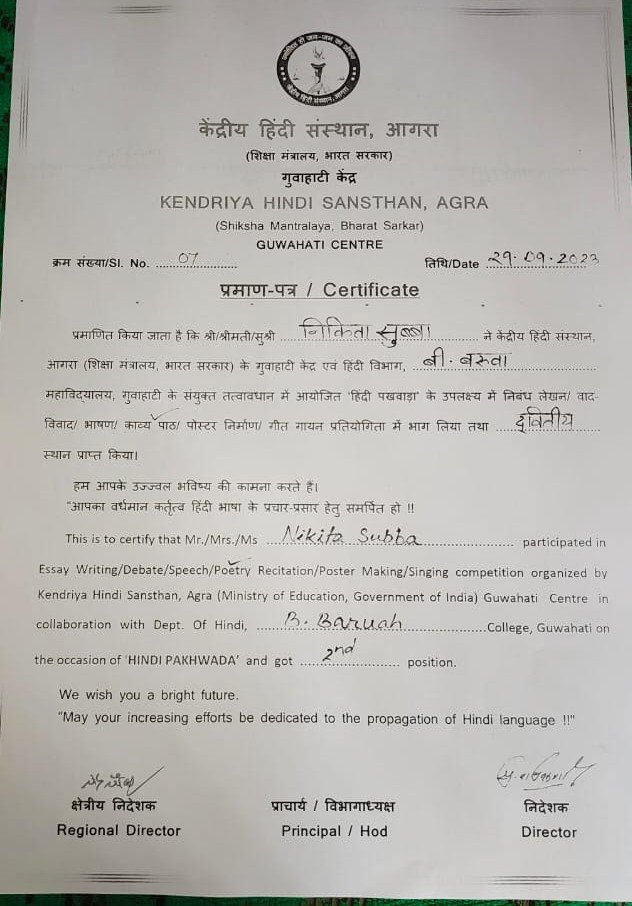 केंद्रीय हिंदी संस्थान, आगरा
(शिक्षा मंत्रालय, भारत सरकार)
गुवाहाटी केंद्र
KENDRIYA HINDI SANSTHAN, AGRA
(Shiksha Mantralaya, Bharat Sarkar)
GUWAHATI CENTRE
क्रम संख्या/Sl. No. 07 तिथि/Date 29.09.2023
प्रमाण-पत्र / Certificate
प्रमाणित किया जाता है कि श्री/श्रीमती/सुश्री निकिता सुब्बा ने केंद्रीय हिंदी संस्थान,
आगरा (शिक्षा मंत्रालय, भारत सरकार) के गुवाहाटी केंद्र एवं हिंदी विभाग, बी. बरुवा
महाविद्यालय, गुवाहाटी के संयुक्त तत्वावधान में आयोजित 'हिंदी पखवाड़ा' के उपलक्ष्य में निबंध लेखन/ वाद-
विवाद/ भाषण/ काव्य पाठ/ पोस्टर निर्माण/ गीत गायन प्रतियोगिता में भाग लिया तथा द्वितीय
स्थान प्राप्त किया।
हम आपके उज्ज्वल भविष्य की कामना करते हैं।
"आपका वर्धमान कर्तृत्व हिंदी भाषा के प्रचार-प्रसार हेतु समर्पित हो !!
This is to certify that Mr./Mrs./Ms Nikita Subba participated in
Essay Writing/Debate/Speech/Poetry Recitation/Poster Making/Singing competition organized by
Kendriya Hindi Sansthan, Agra (Ministry of Education, Government of India) Guwahati Centre in
collaboration with Dept. Of Hindi, B. Baruah College, Guwahati on
the occasion of 'HINDI PAKHWADA' and got 2nd position.
We wish you a bright future.
"May your increasing efforts be dedicated to the propagation of Hindi language !!"
क्षेत्रीय निदेशक प्राचार्य / विभागाध्यक्ष निदेशक
Regional Director Principal / Hod Director